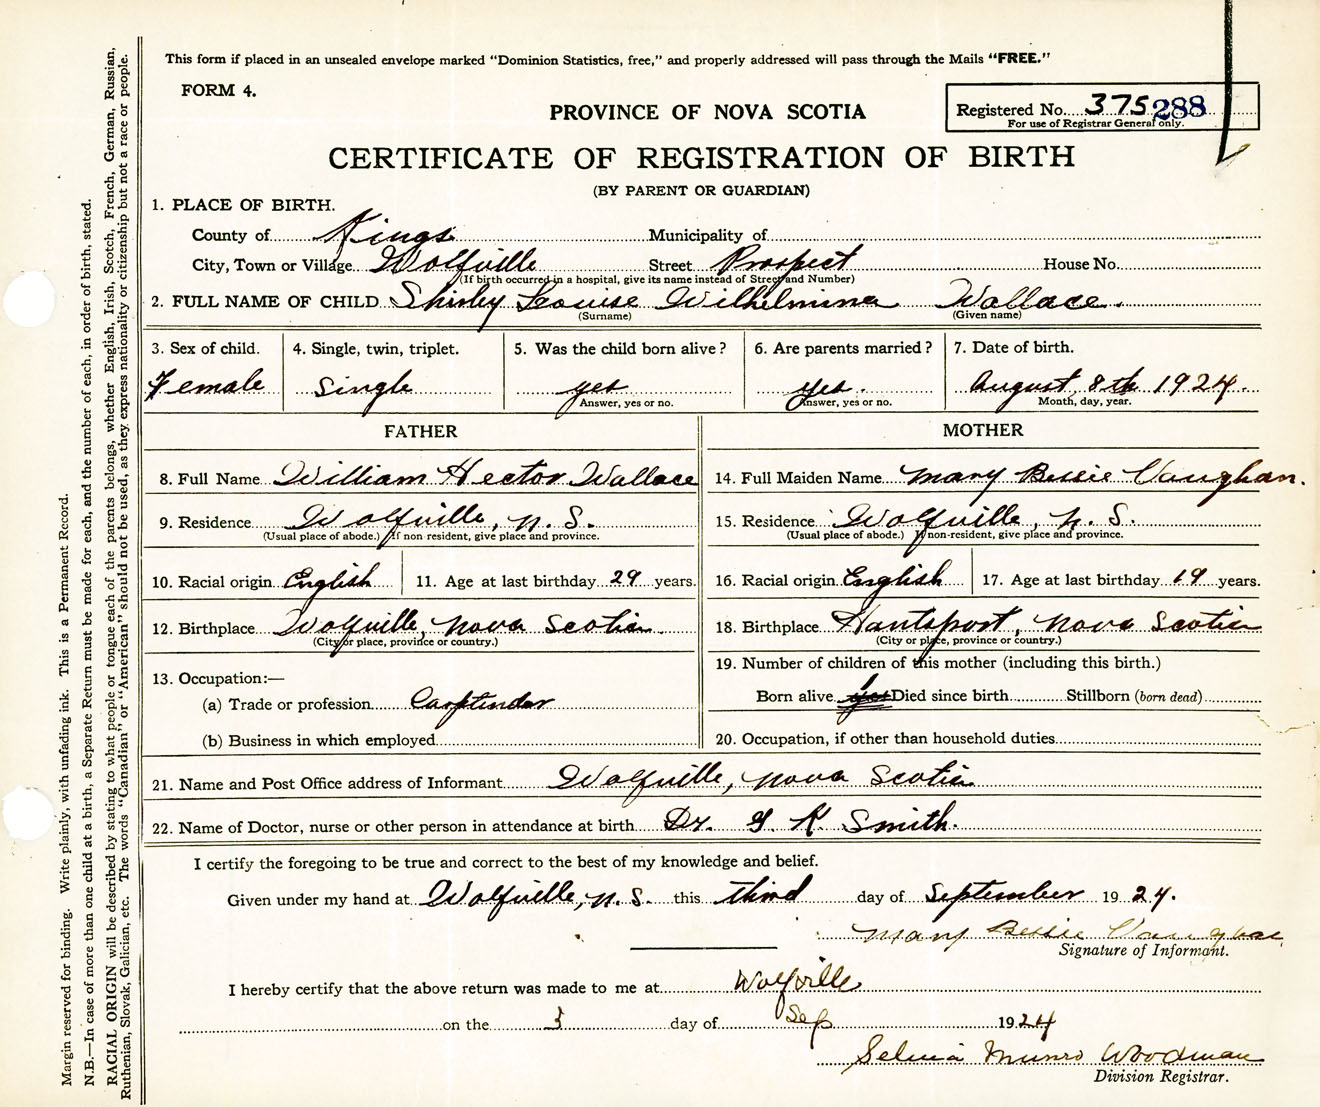 This form if placed in an unsealed envelope marked "Dominion Statistics, free," and properly addressed will pass through the Mails "FREE."
FORM 4.
Registered No. 375 288
For use of Registrar General only.
PROVINCE OF NOVA SCOTIA
CERTIFICATE OF REGISTRATION OF BIRTH
(BY PARENT OR GUARDIAN)
1. PLACE OF BIRTH.
County of Kings Municipality of
City, Town or Village Wolfville Street Prospect House No.
(If birth occurred in a hospital, give its name instead of Street and Number)
2. FULL NAME OF CHILD Shirley Louise Wilhelmina Wallace.
(Surname) (Given name)
3. Sex of child. 4. Single, twin, triplet. 5. Was the child born alive? 6. Are parents married? 7. Date of birth.
Female single yes yes. August 8th 1924.
Answer, yes or no. Answer, yes or no. Month, day, year.
FATHER MOTHER
8. Full Name William Hector Wallace 14. Full Maiden Name Mary Bessie Vaughan.
9. Residence Wolfville, N. S. 15. Residence Wolfville, N. S.
(Usual place of abode.) If non-resident, give place and province. (Usual place of abode.) If non-resident, give place and province.
10. Racial origin English 11. Age at last birthday 29 years. 16. Racial origin English 17. Age at last birthday 19 years.
12. Birthplace Wolfville, Nova Scotia 18. Birthplace Hantsport, Nova Scotia
(City or place, province or country.) (City or place, province or country.)
19. Number of children of this mother (including this birth.)
13. Occupation:—
(a) Trade or profession Carptinder Born alive 1 yes Died since birth Stillborn (born dead)
(b) Business in which employed 20. Occupation, if other than household duties
21. Name and Post Office address of Informant Wolfville, Nova Scotia
22. Name of Doctor, nurse or other person in attendance at birth Dr. G K Smith.
I certify the foregoing to be true and correct to the best of my knowledge and belief.
Given under my hand at Wolfville, N. S. this third day of September 1924.
Mary Bessie Vaughan
Signature of Informant.
I hereby certify that the above return was made to me at Wolfville
on the 3 day of Sep 1924
Selina Munro Woodman
Division Registrar.
Margin reserved for binding. Write plainly, with unfading ink. This is a Permanent Record.
N.B.—In case of more than one child at a birth, a Separate Return must be made for each, and the number of each, in order of birth, stated.
RACIAL ORIGIN will be described by stating to what people or tongue each of the parents belongs, whether English, Irish, Scotch, French, German, Russian,
Ruthenian, Slovak, Galician, etc. The words "Canadian" or "American" should not be used, as they express nationality or citizenship but not a race or people.